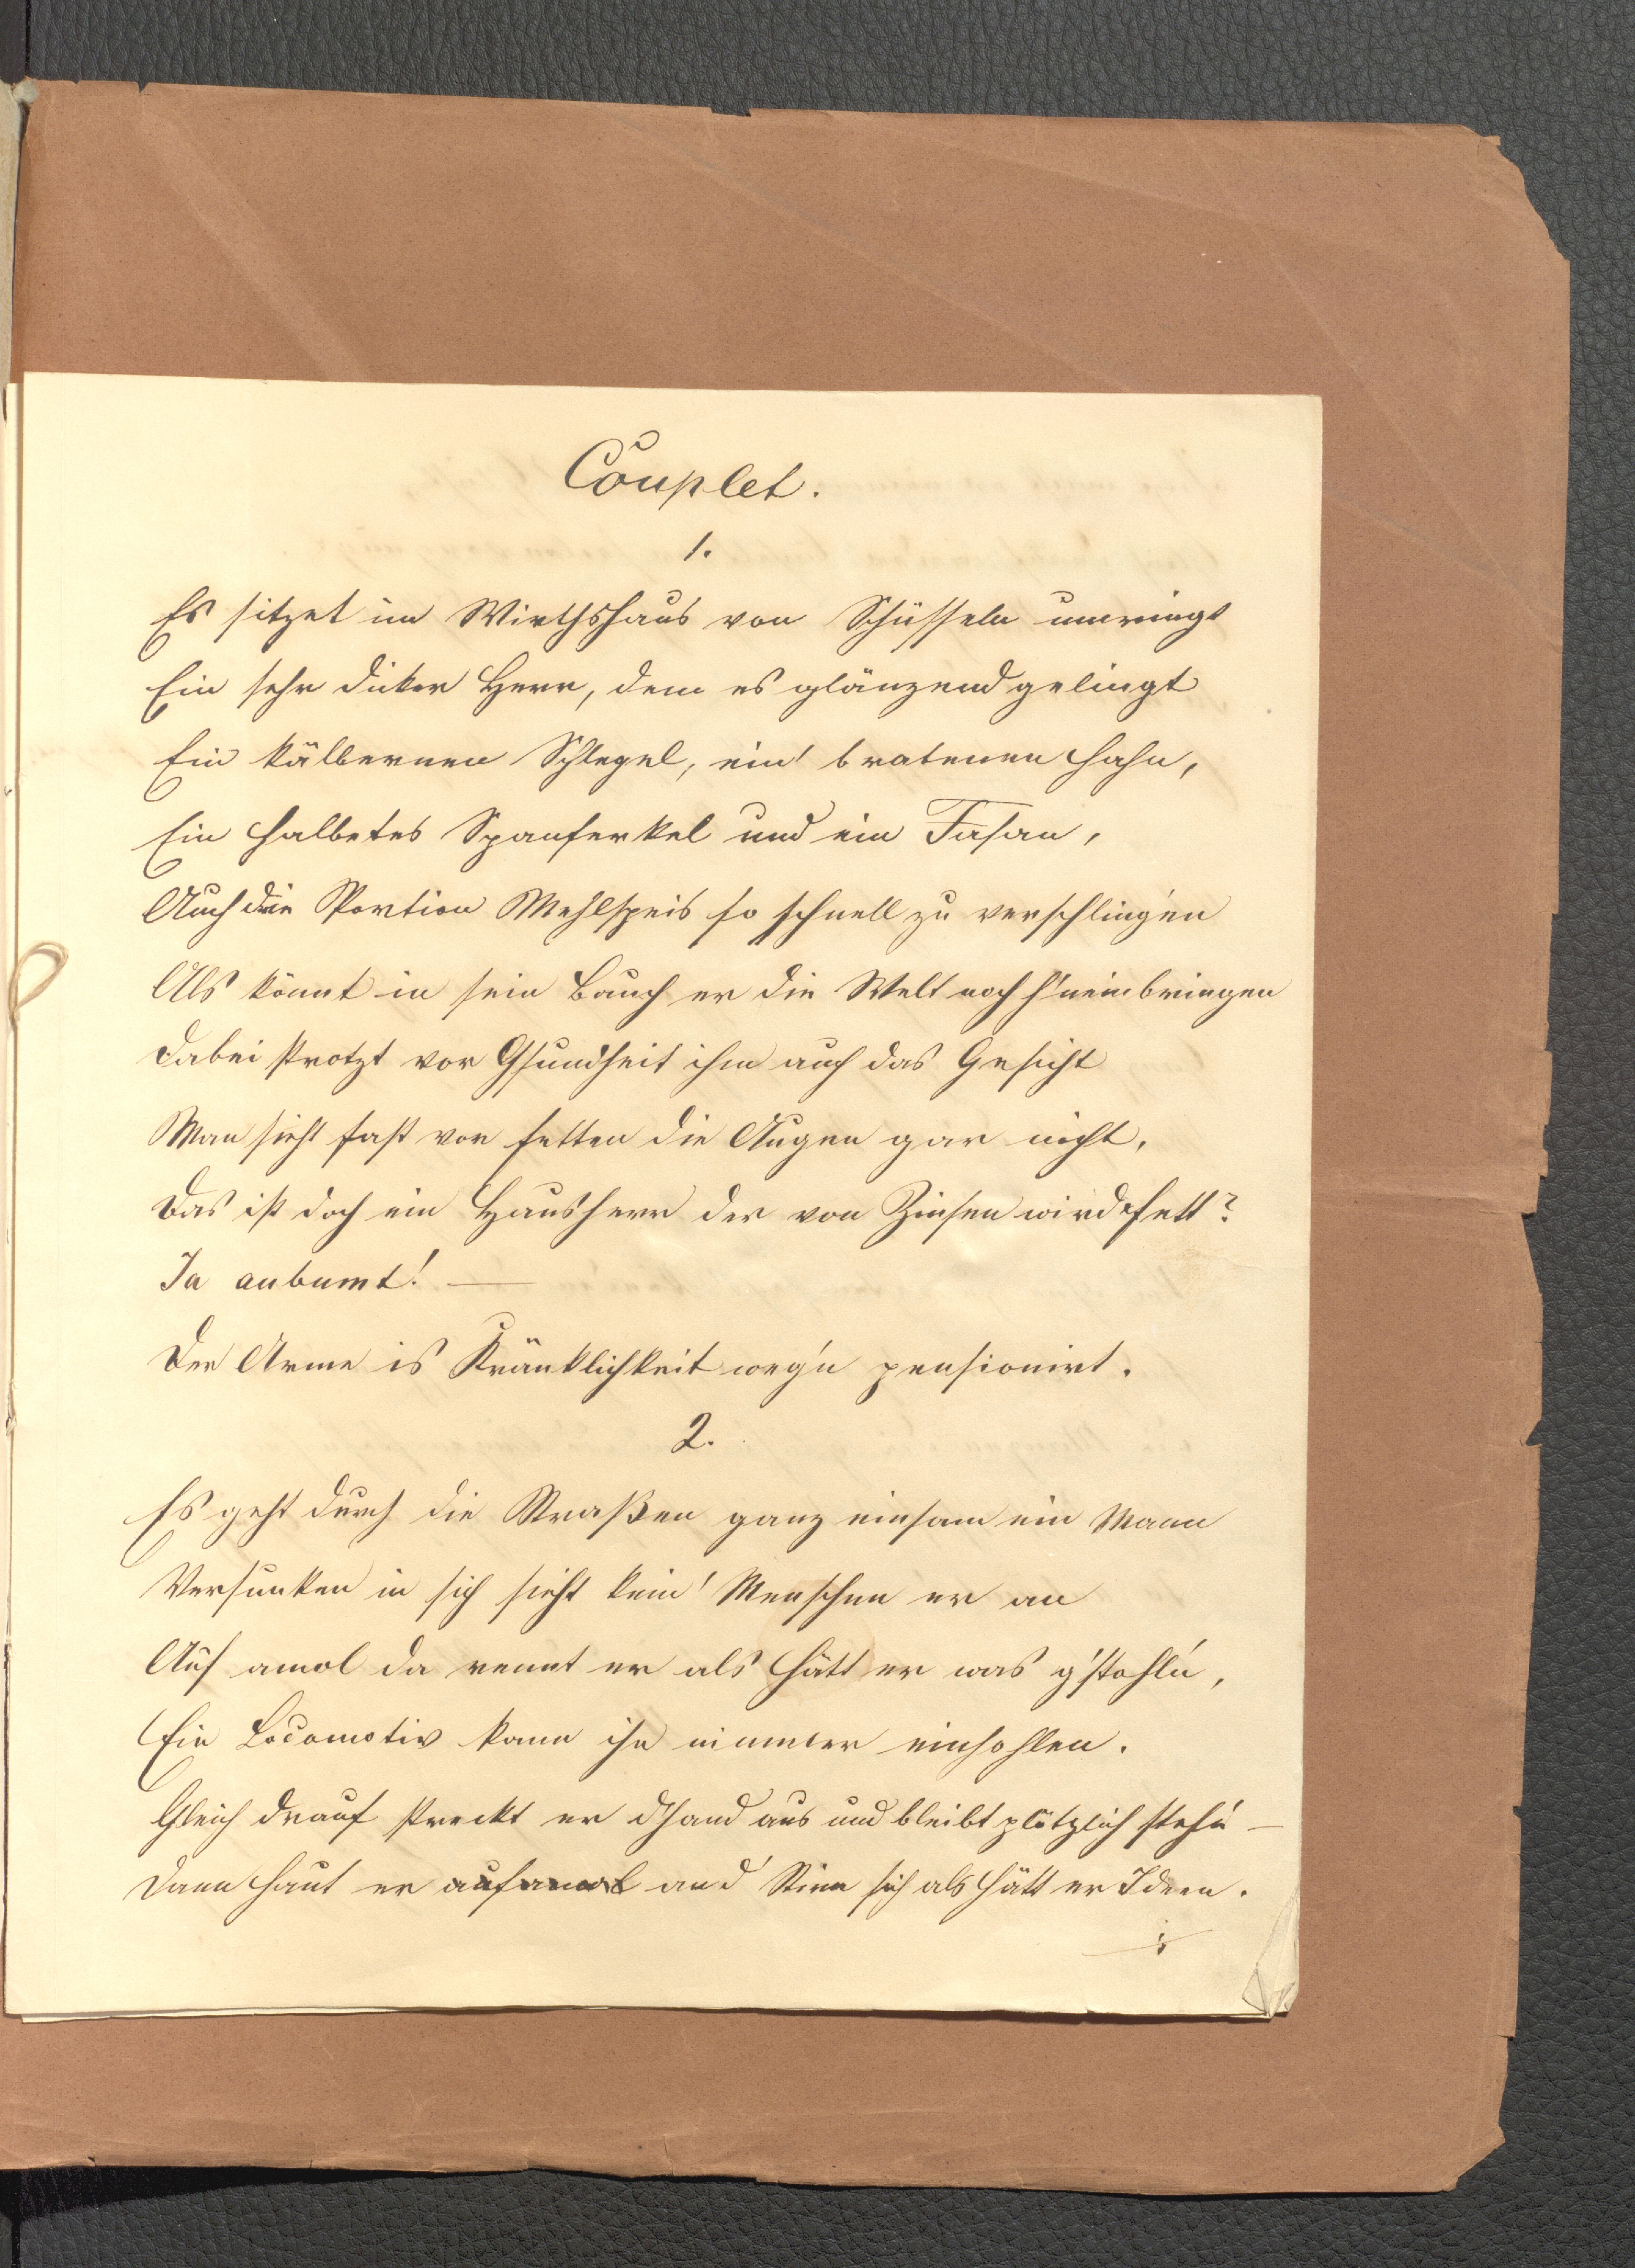 Couplet.
1.
Es sitzet im Wirthshaus von Schüsseln umringt
Ein sehr dicker Herr, dem es glänzend gelingt
Ein kälbernen Schlegel, ein' bratenen Hahn,
Ein halbetes Spanferkel und ein Fasan,
Auch die Portion Mehlspeis so schnell zu verschlingen
Als könnt in sein Bauch er die Welt noch h'neinbringen
Dabei strotzt vor Gsundheit ihm auch das Gesicht
Man sieht fast vor fetten die Augen gar nicht,
Das ist doch ein Hausherr der von Zinsen wird fett?
Ja anbumt! —
Der Arme is Kränklichkeit weg'n pensionirt.
2.
Es geht durch die Straßen ganz einsam ein Mann
Versunken in sich sieht kein' Menschen er an
Auf amol da rennt er als hätt er was g'stohl'n,
Ein Locomotiv kann ihn nimmer einhohlen.
Gleich drauf streckt er d'Hand aus und bleibt plötzlich steh'n —
Dann haut er aufamol an d' Stirn sich als hätt er Ideen.